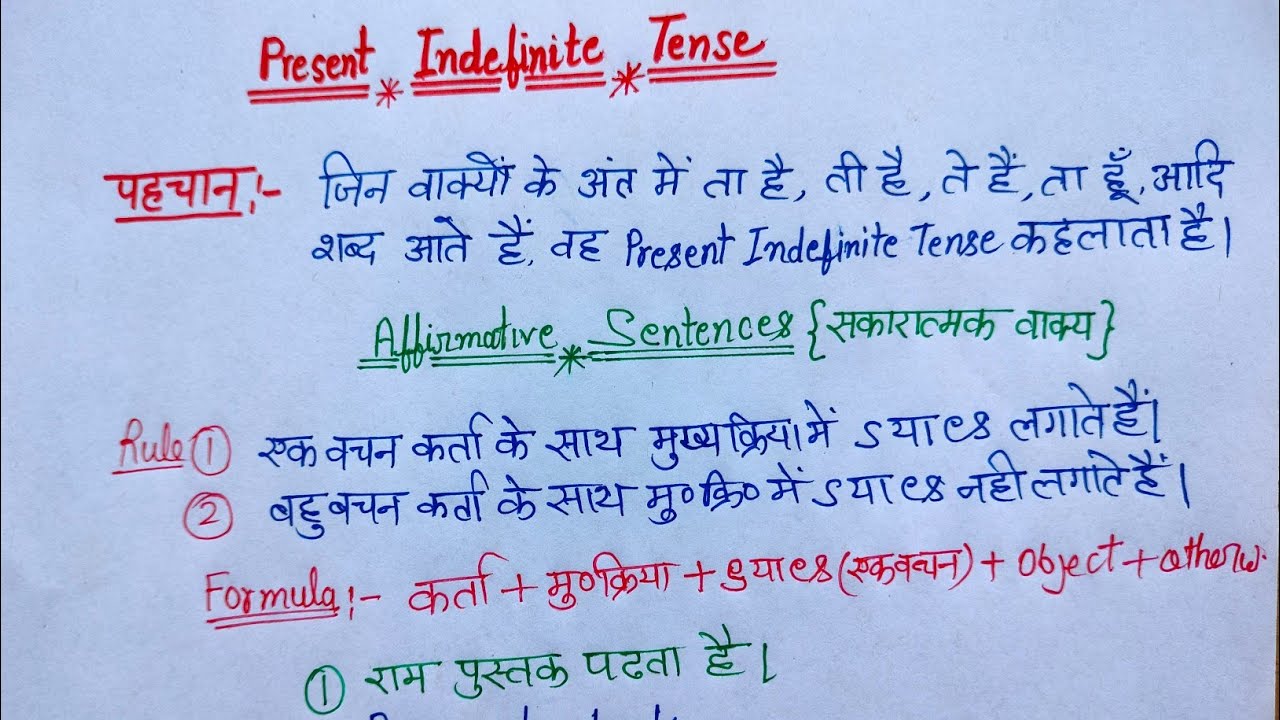 Present * Indefinite * Tense
पहचान:- जिन वाक्यों के अंत में ता है, ती है, ते हैं, ता हूँ, आदि
शब्द आते हैं, वह Present Indefinite Tense कहलाता है।
Affirmative * Sentences {सकारात्मक वाक्य}
Rule ① एक वचन कर्ता के साथ मुख्य क्रिया में s या es लगाते हैं।
② बहुबचन कर्ता के साथ मु० क्रि० में s या es नही लगाते हैं।
Formula:- कर्ता + मु० क्रिया + s या es (एकवचन) + Object + other w.
① राम पुस्तक पढता है।